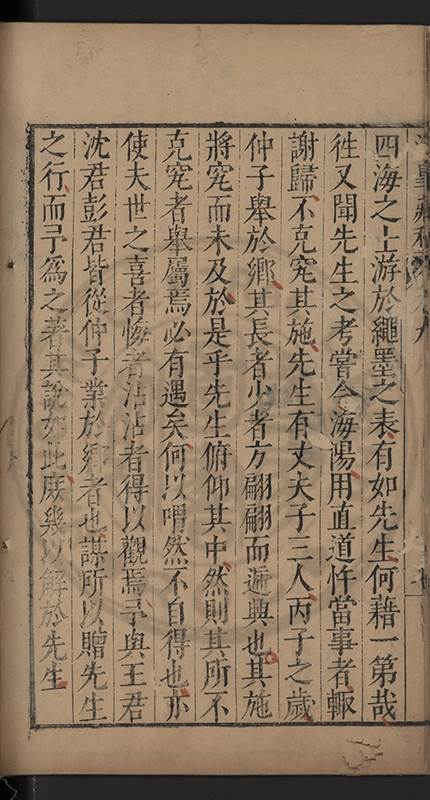 四海之士游於繩墨之表有如先生何藉一第哉
徃又聞先生之考嘗令海陽用直道忤當事者輙
謝歸不克究其施先生有丈夫子三人丙子之歲
仲子舉於鄉其長者少者方翩翩而遞興也其施
將究而未及於是乎先生俯仰其中然則其所不
克究者舉屬焉必有遇矣何以喟然不自得也亦
使夫世之喜者悔者沾沾者得以觀焉予與王君
沈君彭君皆從仲子業於鄉者也謀所以贈先生
之行而予為之著其說如此庶幾以解於先生